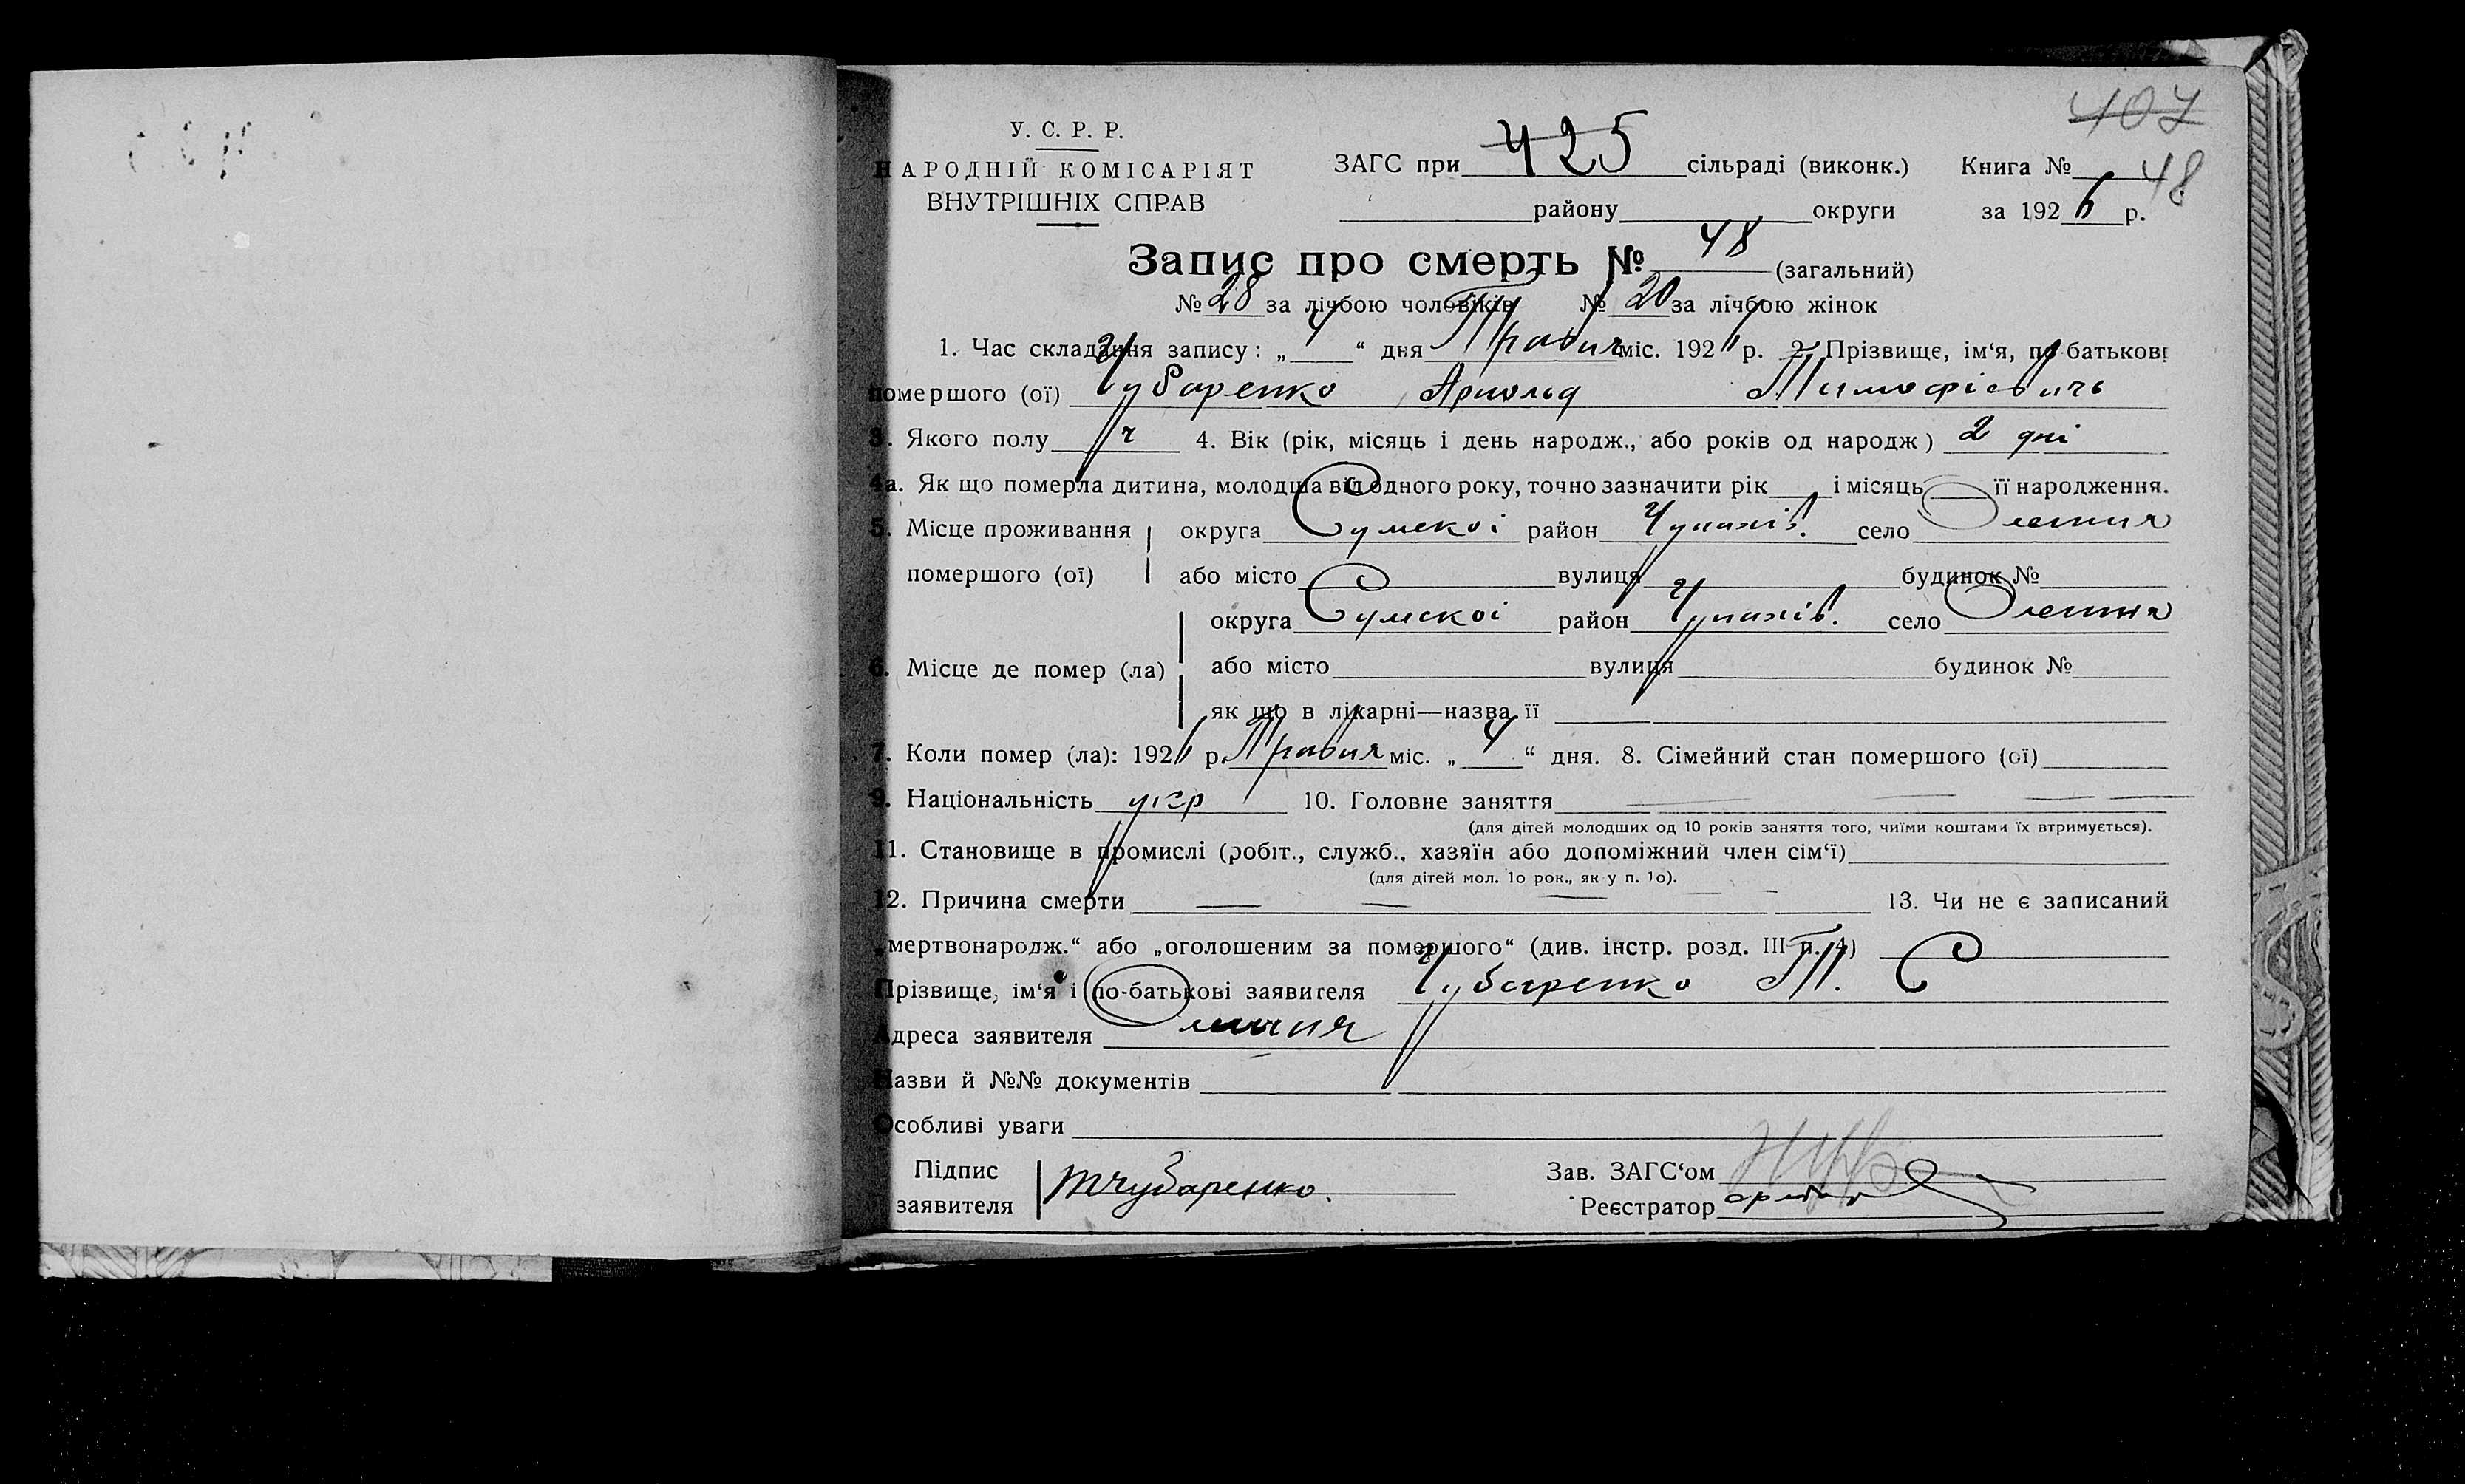 407
У. С. Р. Р.
НАРОДНІЙ КОМІСАРІЯТ
ВНУТРІШНІХ СПРАВ
ЗАГС при 425 сільраді (виконк.) Книга № 48
району округи за 1926 р.
Запис про смерть № 48 (загальний)
№ 28 за лічбою чоловіків № 20 за лічбою жінок
1. Час складання запису: „ 4 “ дня Травня міс. 1926 р. 2. Прізвище, ім‘я, по батькові
помершого (ої) Чубаренко Арнольд Тимофієвичь
3. Якого полу ч 4. Вік (рік, місяць і день народж., або років од народж) 2 дні
4а. Як що померла дитина, молодша від одного року, точно зазначити рік і місяць її народження.
5. Місце проживання округа Сумскоі район Чупахів. село Олешня
помершого (ої) або місто вулиця будинок №
округа Сумскоі район Чупахів. село Олешня
6. Місце де помер (ла) або місто вулиця будинок №
як що в лікарні—назва її
7. Коли помер (ла): 1926 р. Травня міс. „ 4 “ дня. 8. Сімейний стан помершого (ої)
9. Національність укр 10. Головне заняття
(для дітей молодших од 10 років заняття того, чиїми коштами їх втримується).
11. Становище в промислі (робіт., служб., хазяїн або допоміжний член сім‘ї)
(для дітей мол. 1о рок., як у п. 1о).
12. Причина смерти 13. Чи не є записаний
„мертвонародж.“ або „оголошеним за помершого“ (див. інстр. розд. III п. 4)
Прізвище, ім‘я і по-батькові заявителя Чубаренко Т. С
Адреса заявителя Олешня
Назви й №№ документів
Особливі уваги
Підпис заявителя ТЧубаренко.
Зав. ЗАГС‘ом
Реєстратор